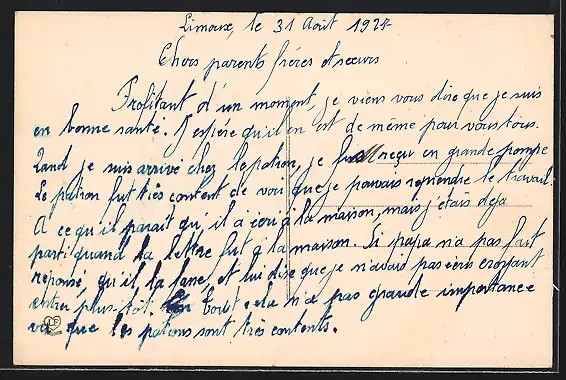 Limoux, le 31 Août 1927
Chers parents frères et sœurs
Profitant d'un moment, je viens vous dire que je suis
en bonne santé. J'espère qu'il en est de même pour vous tous.
Quand je suis arrivé chez le patron, je fus reçu en grande pompe
Le patron fut très content de voir que je pouvais reprendre le travail.
A ce qu'il parait qu'il a écri à la maison, mais j'étais déja
parti quand la lettre fut à la maison. Si papa n'a pas fait
réponse, qu'il la fasse, et lui dise que je n'avais pas écris croyant
entrer plus tôt. Tout cela n'a pas grande importance
vu que les patrons sont très contents.